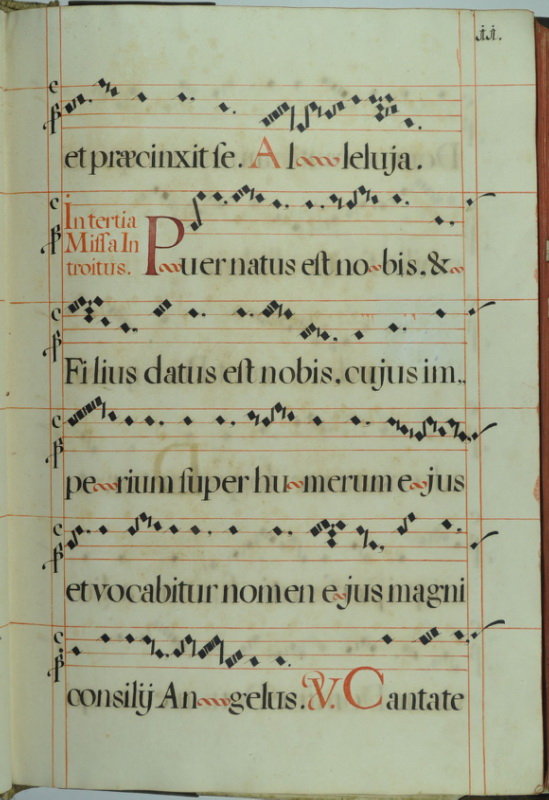 ii.
et præcinxit se. A l leluja.
In tertia
Missa In
troitus.
Puer natus est nobis, &
Filius datus est nobis, cujus im..
perium super humerum ejus
et vocabitur nomen ejus magni
consilij Angelus. V. Cantate